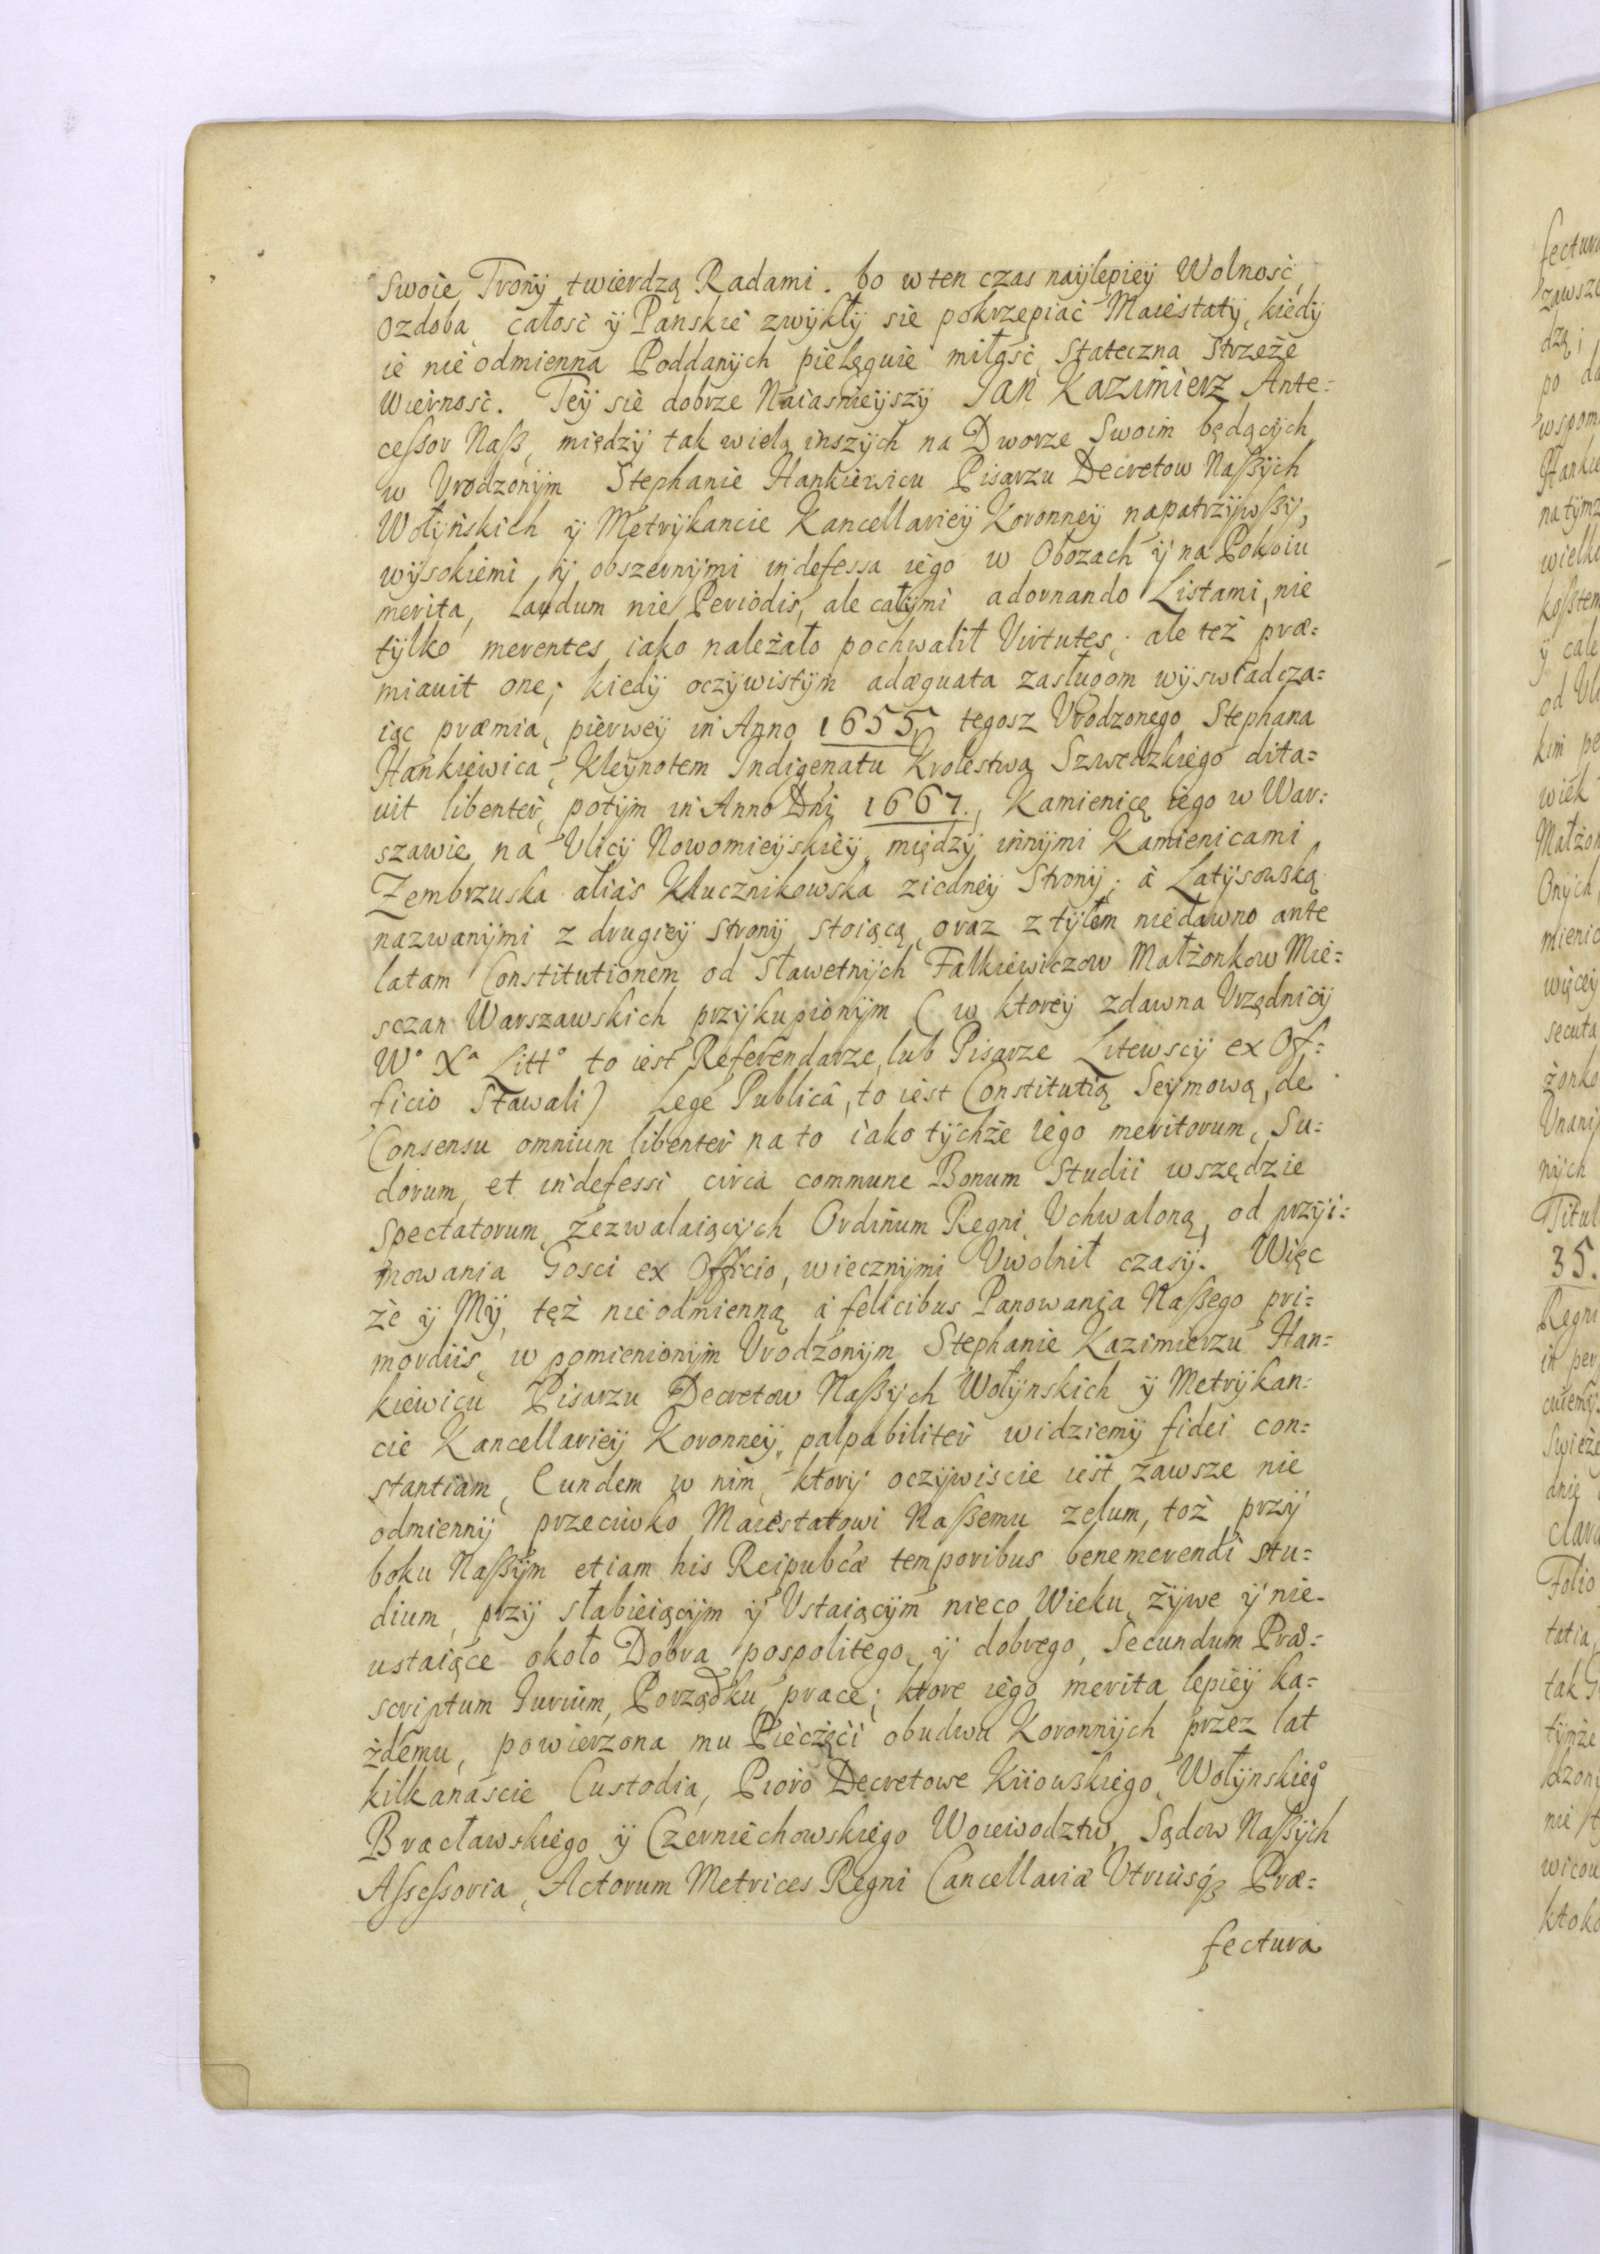 Swoie Trony twierdzą Radami. bo w ten czas naylepiey Wolność,
Ozdoba, całość ÿ Panskie zwykły sie pokrzepiać Maiestaty, kiedy
ie nieodmienna Poddanych pielęguie miłość, Stateczna Strzeże
Wierność. Tey sie dobrze Naiasnieyszy JAN KAZIMIERZ Ante=
cessor Nasz, między tak wielą inszych na Dworze Swoim będących,
w Vrodzonym Stephanie Hankiewicu Pisarzu Decretow Naszych
Wołyńskich ÿ Metrykancie Kancellaryey Koronney napatrzywszy,
wysokiemi ÿ obszernymi indefessa iego w Obozach ÿ na Pokoiu
merita, Laudum nie Periodis, ale całymi adornando Listami, nie
tylko merentes iako należało pochwalił Virtutes, ale też præ=
miauit one; kiedy oczywistym adæquata zasługom wyswiadcza=
iąc præmia, pierwey in Anno 1655, tegosz Vrodzonego Stephana
Hankiewica, Kleynotem Indigenatu Krolestwa Szwedzkiego dita=
uit libenter, potym in Anno Dni 1667., Kamienicę iego w War=
szawie na Vlicy Nowomieyskiey, między innymi Kamienicami
Zembrzuska alias Klucznikowska ziedney Strony; à Latysowską
nazwanymi z drugiey strony stoiącą, oraz z tyłem niedawno ante
latam Constitutionem od Sławetnych Falkiewiczow Małżonkow Mie=
sczan Warszawskich przykupionym (w ktorey zdawna Vrzędnicy
W° Xª Litt° to iest Referendarze, lub Pisarze Litewscy ex Of=
ficio Stawali) Lege Publicâ, to iest Constitutią Seymową, de
Consensu omnium libenter na to iako tychże iego meritorum, Su=
dorum, et indefessi circa commune Bonum Studii wszędzie
Spectatorum, zezwalaiących Ordinum Regni Vchwaloną, od przyi=
mowania Gosci ex Officio, wiecznymi Vwolnił czasy. Więc
że ÿ My, tęż nieodmienną à felicibus Panowania Naszego pri=
mordiis, w pomienionym Vrodzonym Stephanie Kazimierzu Han=
kiewicu Pisarzu Decretow Naszych Wołynskich ÿ Metrykan=
cie Kancellaryey Koronney, palpabiliter widziemy fidei con=
stantiam, Eundem w nim, ktory oczywiscie iest zawsze nie
odmienny przeciwko Maiestatowi Naszemu zelum, toż przy
boku Naszym etiam his Reipubcæ temporibus benemerendi Stu=
dium, przy słabieiącym ÿ Vstaiącym nieco Wieku, żywe ÿ nie-
ustaiące około Dobra pospolitego, ÿ dobrego, Secundum Præ=
scriptum Iurium, Porządku prace; ktore iego merita lepiey ka=
żdemu, powierzona mu Pieczęci obudwu Koronnych przez lat
kilkanascie Custodia, Pioro Decretowe Kiiowskiego, Wołynskieg°
Bracławskiego ÿ Czerniechowskiego Woiewodztw, Sądow Naszych
Assessoria, Actorum Metrices Regni Cancellariæ Vtriusqꝫ Præ=
fectura